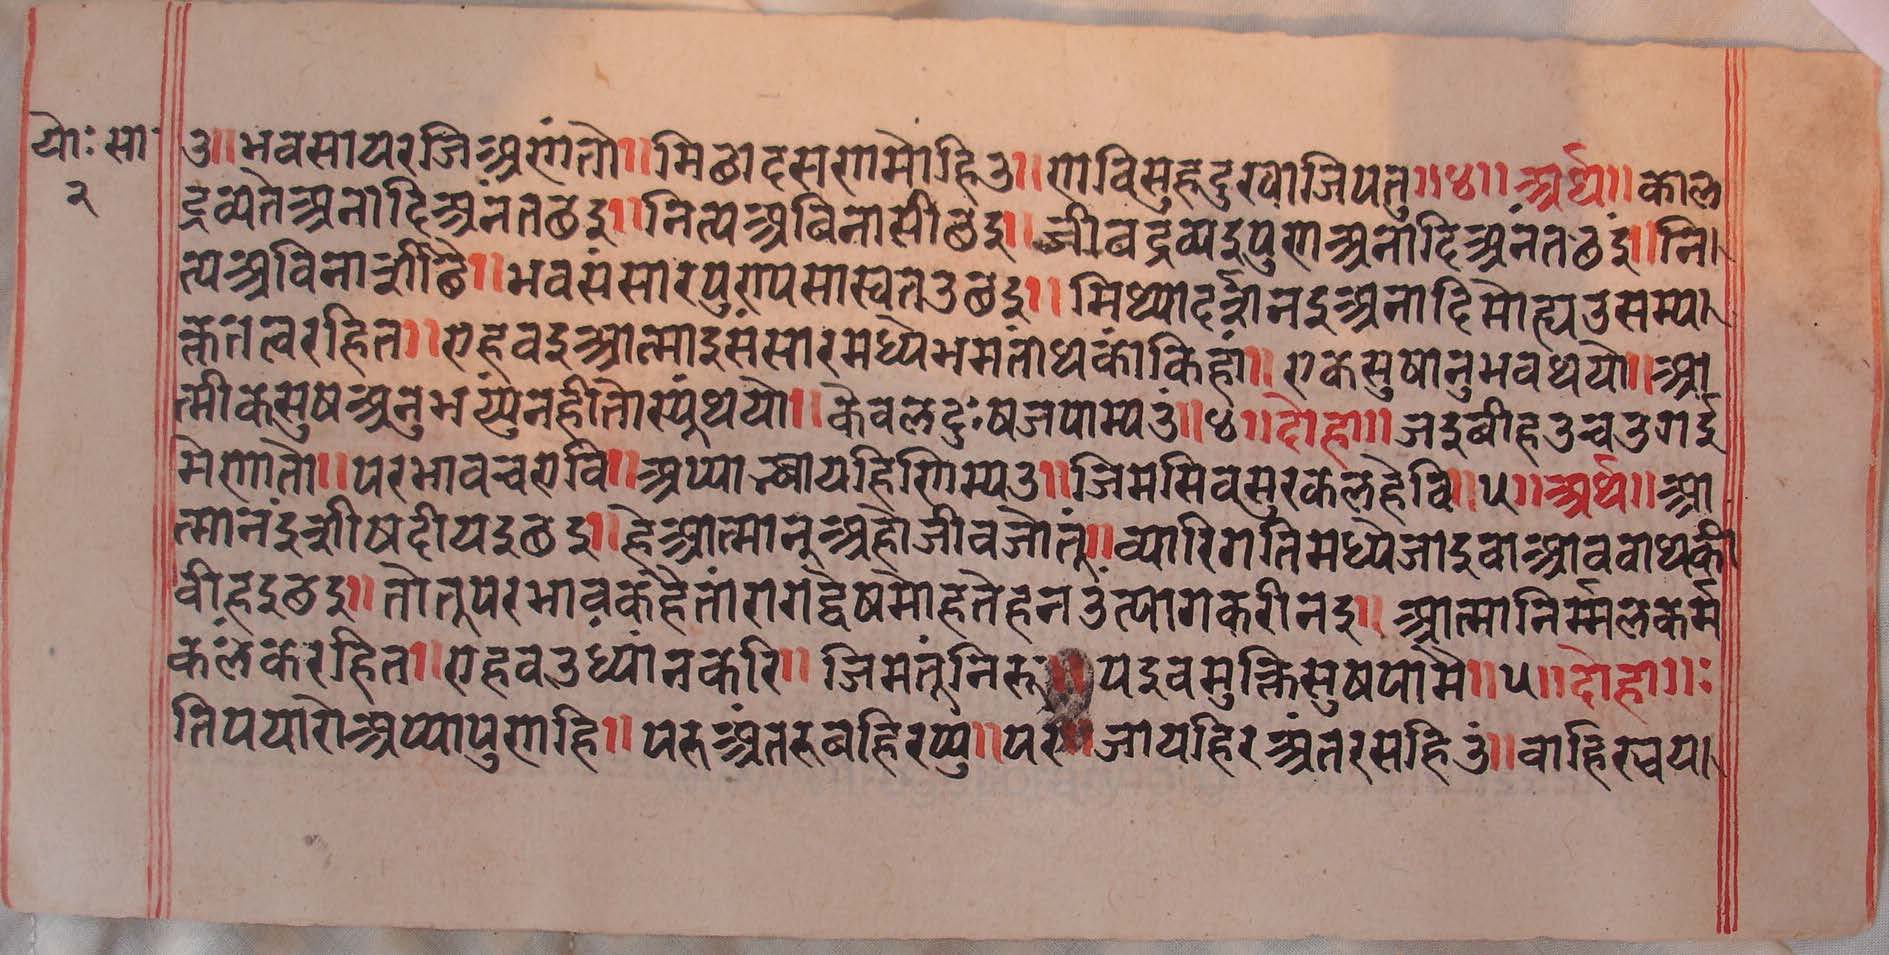 योः सा
२
उ॥ भवसायरजिअणंतो॥ मिछादसणमोहिउ॥ णविसुहदुरवाजिपतु॥४॥ अर्थ॥ काल
द्रव्यतेअनादिअनंतछइ॥ नित्यअविनासीछइ॥ जीवद्रव्यइपुणअनादिअनंतछइ॥ नि
त्यअविनाशीछै॥ भवसंसारपुणपसास्वतउछइ॥ मिथ्यादर्शनइअनादिमोह्यउसम्य
क्तेतत्वरहित॥ एहवइआत्माइसंसारमध्येभमतांथकांकिहां॥ एकसुषानुभवथयो॥ आ
त्मीकसुषअनुभय्युनहीतोस्युंथयो॥ केवलदुःषजपाम्यउं॥४॥ दोहा॥ जइबीहउचउगई
मेणातो॥ परभावचएवि॥ अप्पाझायहिणिम्यउ॥ जिमसिवसुरकलहेवि॥५॥ अर्थ॥ आ
त्मानंइशीषदीयइछइ॥ हेआत्मानुअहोजीवजोतुं॥ च्यारिगतिमध्येजाइवाआववाथकी
बीहइछइ॥ तोतुपरभावकहेतांरागद्वेषमोहतेहनउंत्यागकरीनइ॥ आत्मानिर्म्मलकर्म
कलंकरहित॥ एहवउध्यांनकरि॥ जिमतुंनिरू॥ पइवमुक्तिसुषपामे॥५॥ दोहा॥ः
तिपयारोअप्पापुणहि॥ परुअंतरुबहिरप्पु॥ पर॥ जायहिरअंतरसहिउं॥ वाहिरुचय